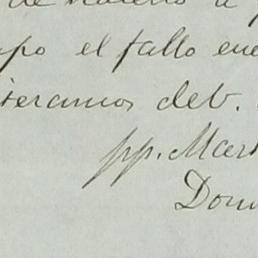 de
po el fallo en
iteramos deb.
pp. Mar
Dom